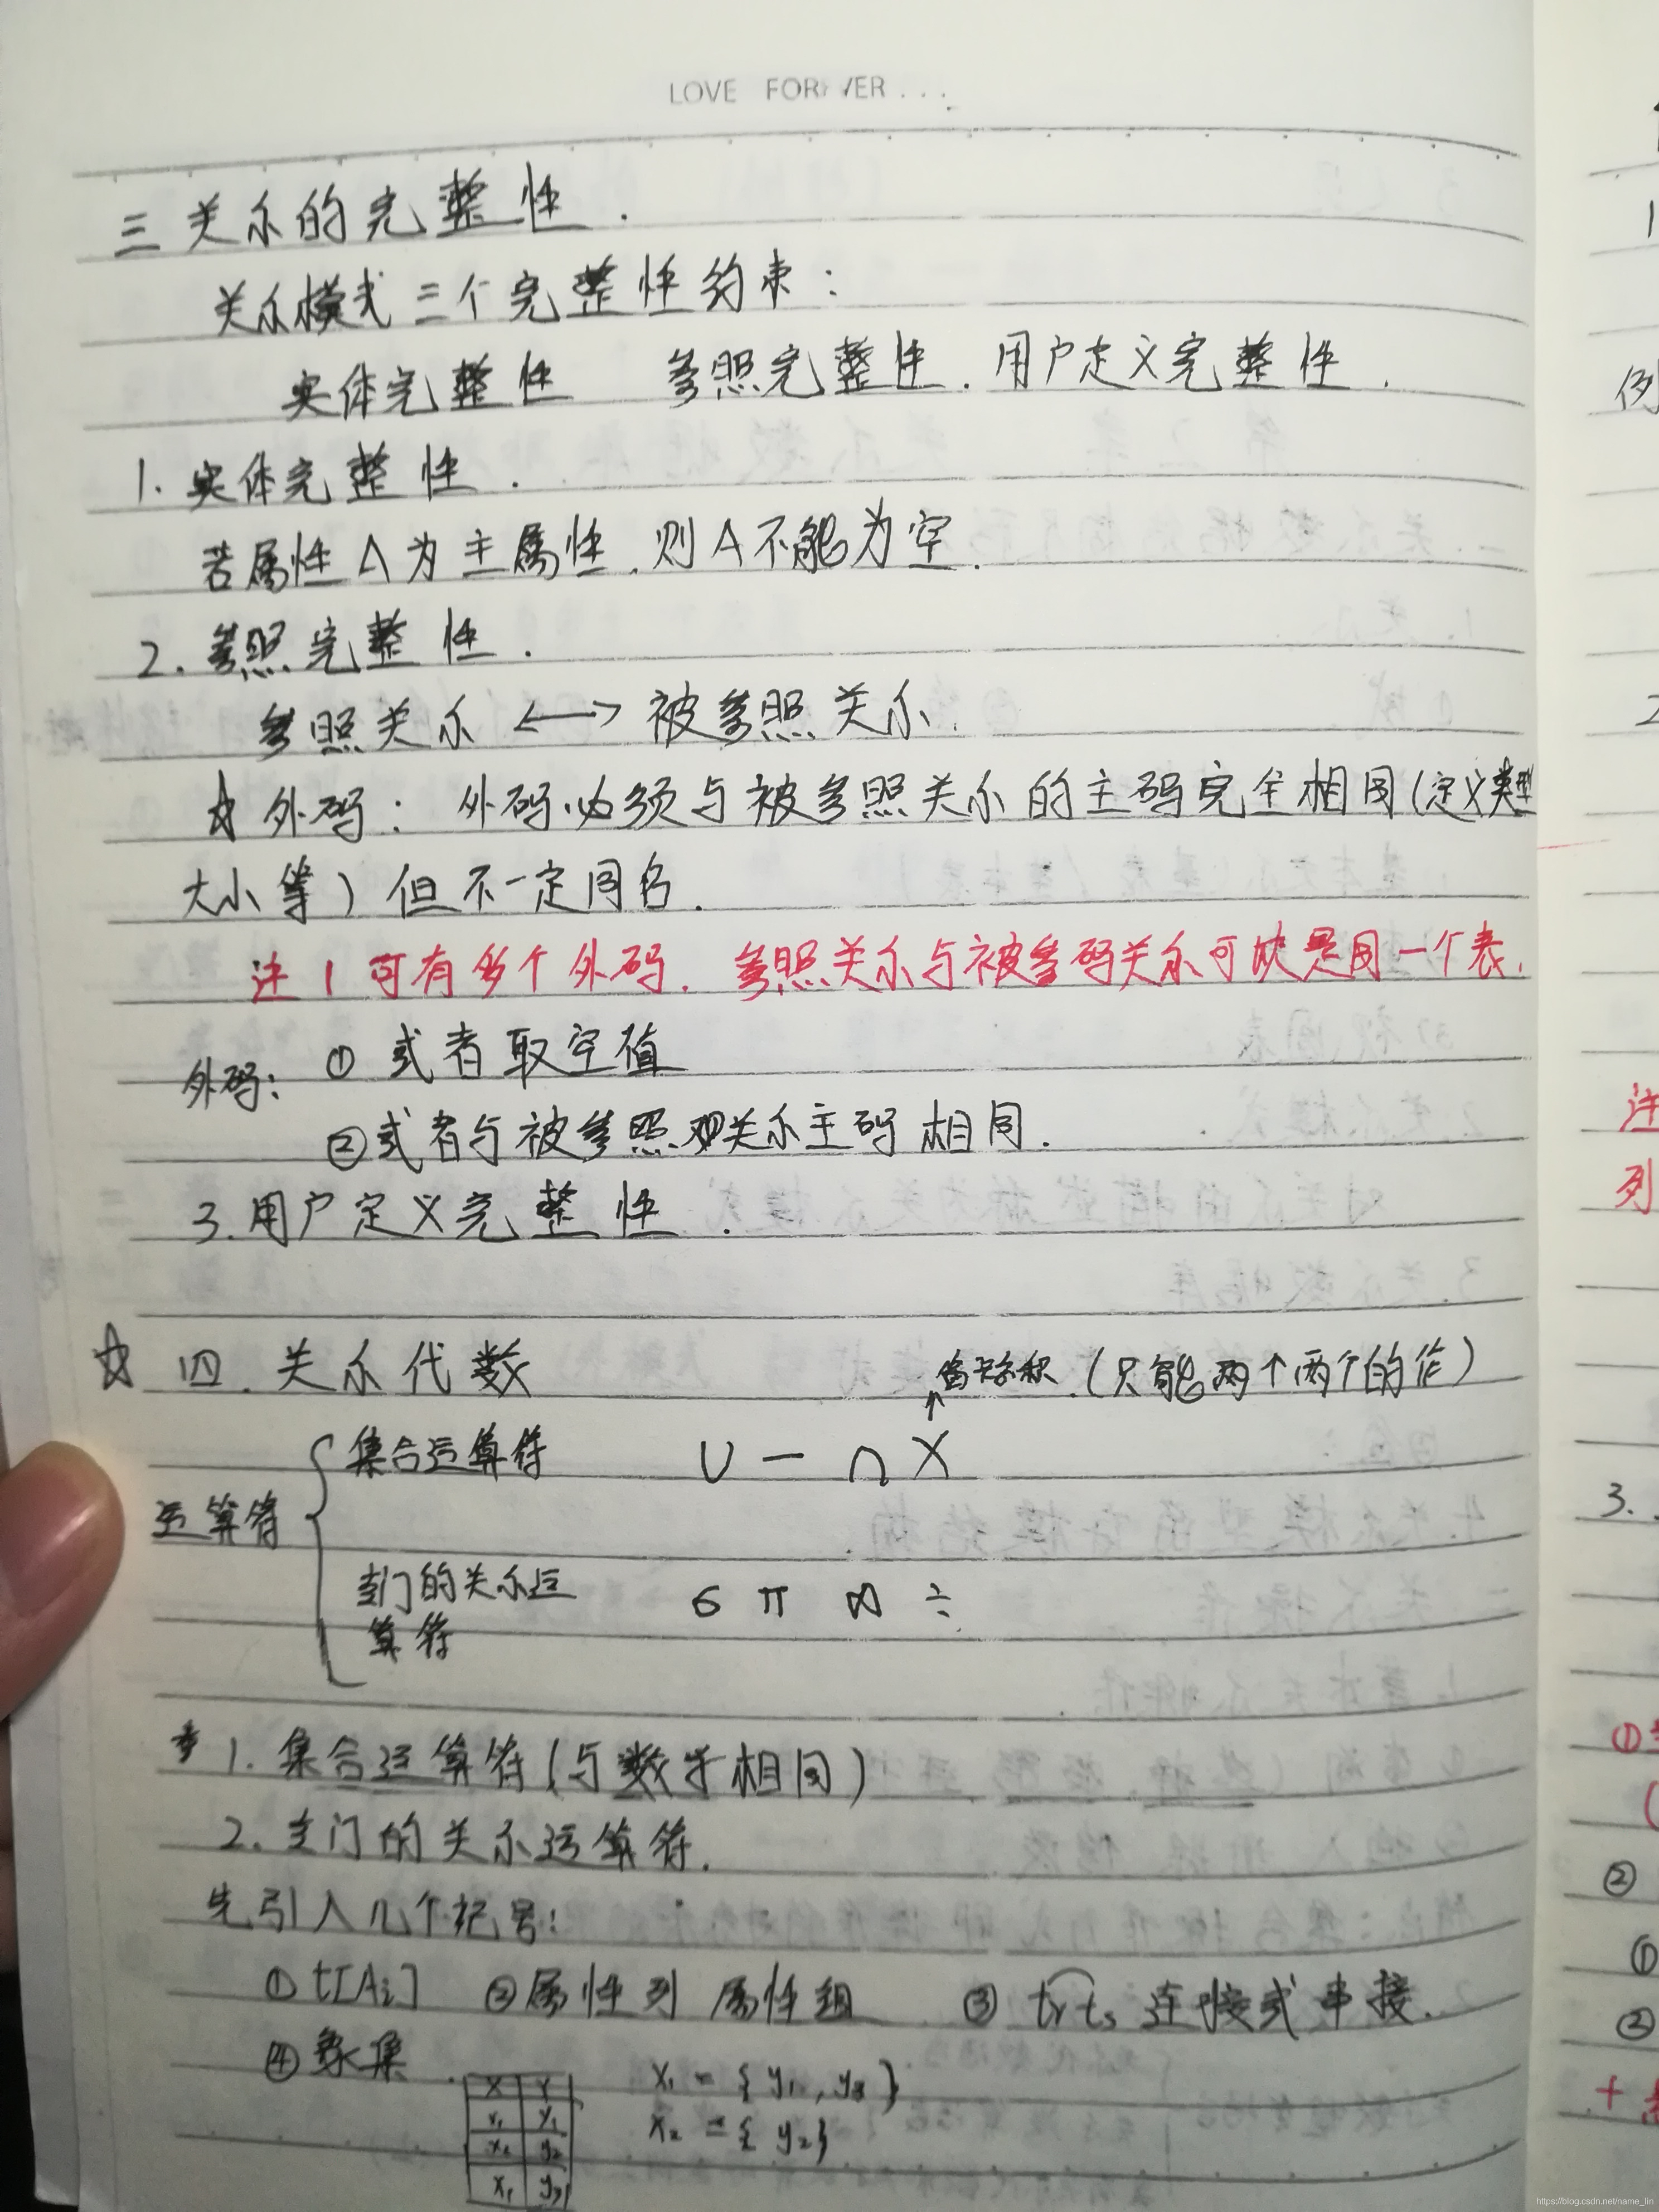 LOVE FOREVER...
三 关系的完整性.
关系模式三个完整性约束:
实体完整性 参照完整性. 用户定义完整性.
1. 实体完整性.
若属性A为主属性.则A不能为空.
2. 参照完整性.
参照关系 <—> 被参照关系.
☆ 外码: 外码必须与被参照关系的主码完全相同(定义类型
大小等) 但不一定同名.
注1 可有多个外码. 参照关系与被参码关系可以是同一个表.
外码: ① 或者取空值
②或者与被参照关系主码相同.
3. 用户定义完整性.
☆ 四. 关系代数
笛卡尔积.(只能两个两个的作)
运算符
集合运算符 ∪ — ∩ X
专门的关系运
算符
σ π ⋈ ÷
1. 集合运算符(与数学相同)
2. 专门的关系运算符.
先引入几个记号:
① t[Ai] ②属性列 属性组 ③ tr⌒ts 连接或串接.
④ 象集
X Y
x1 y1
x2 y2
x1 y3
x1 = { y1 , y3 }
x2 = { y2 }
例
1
2
注
列
3.
①
(
②
①
②
+
https://blog.csdn.net/name_lin